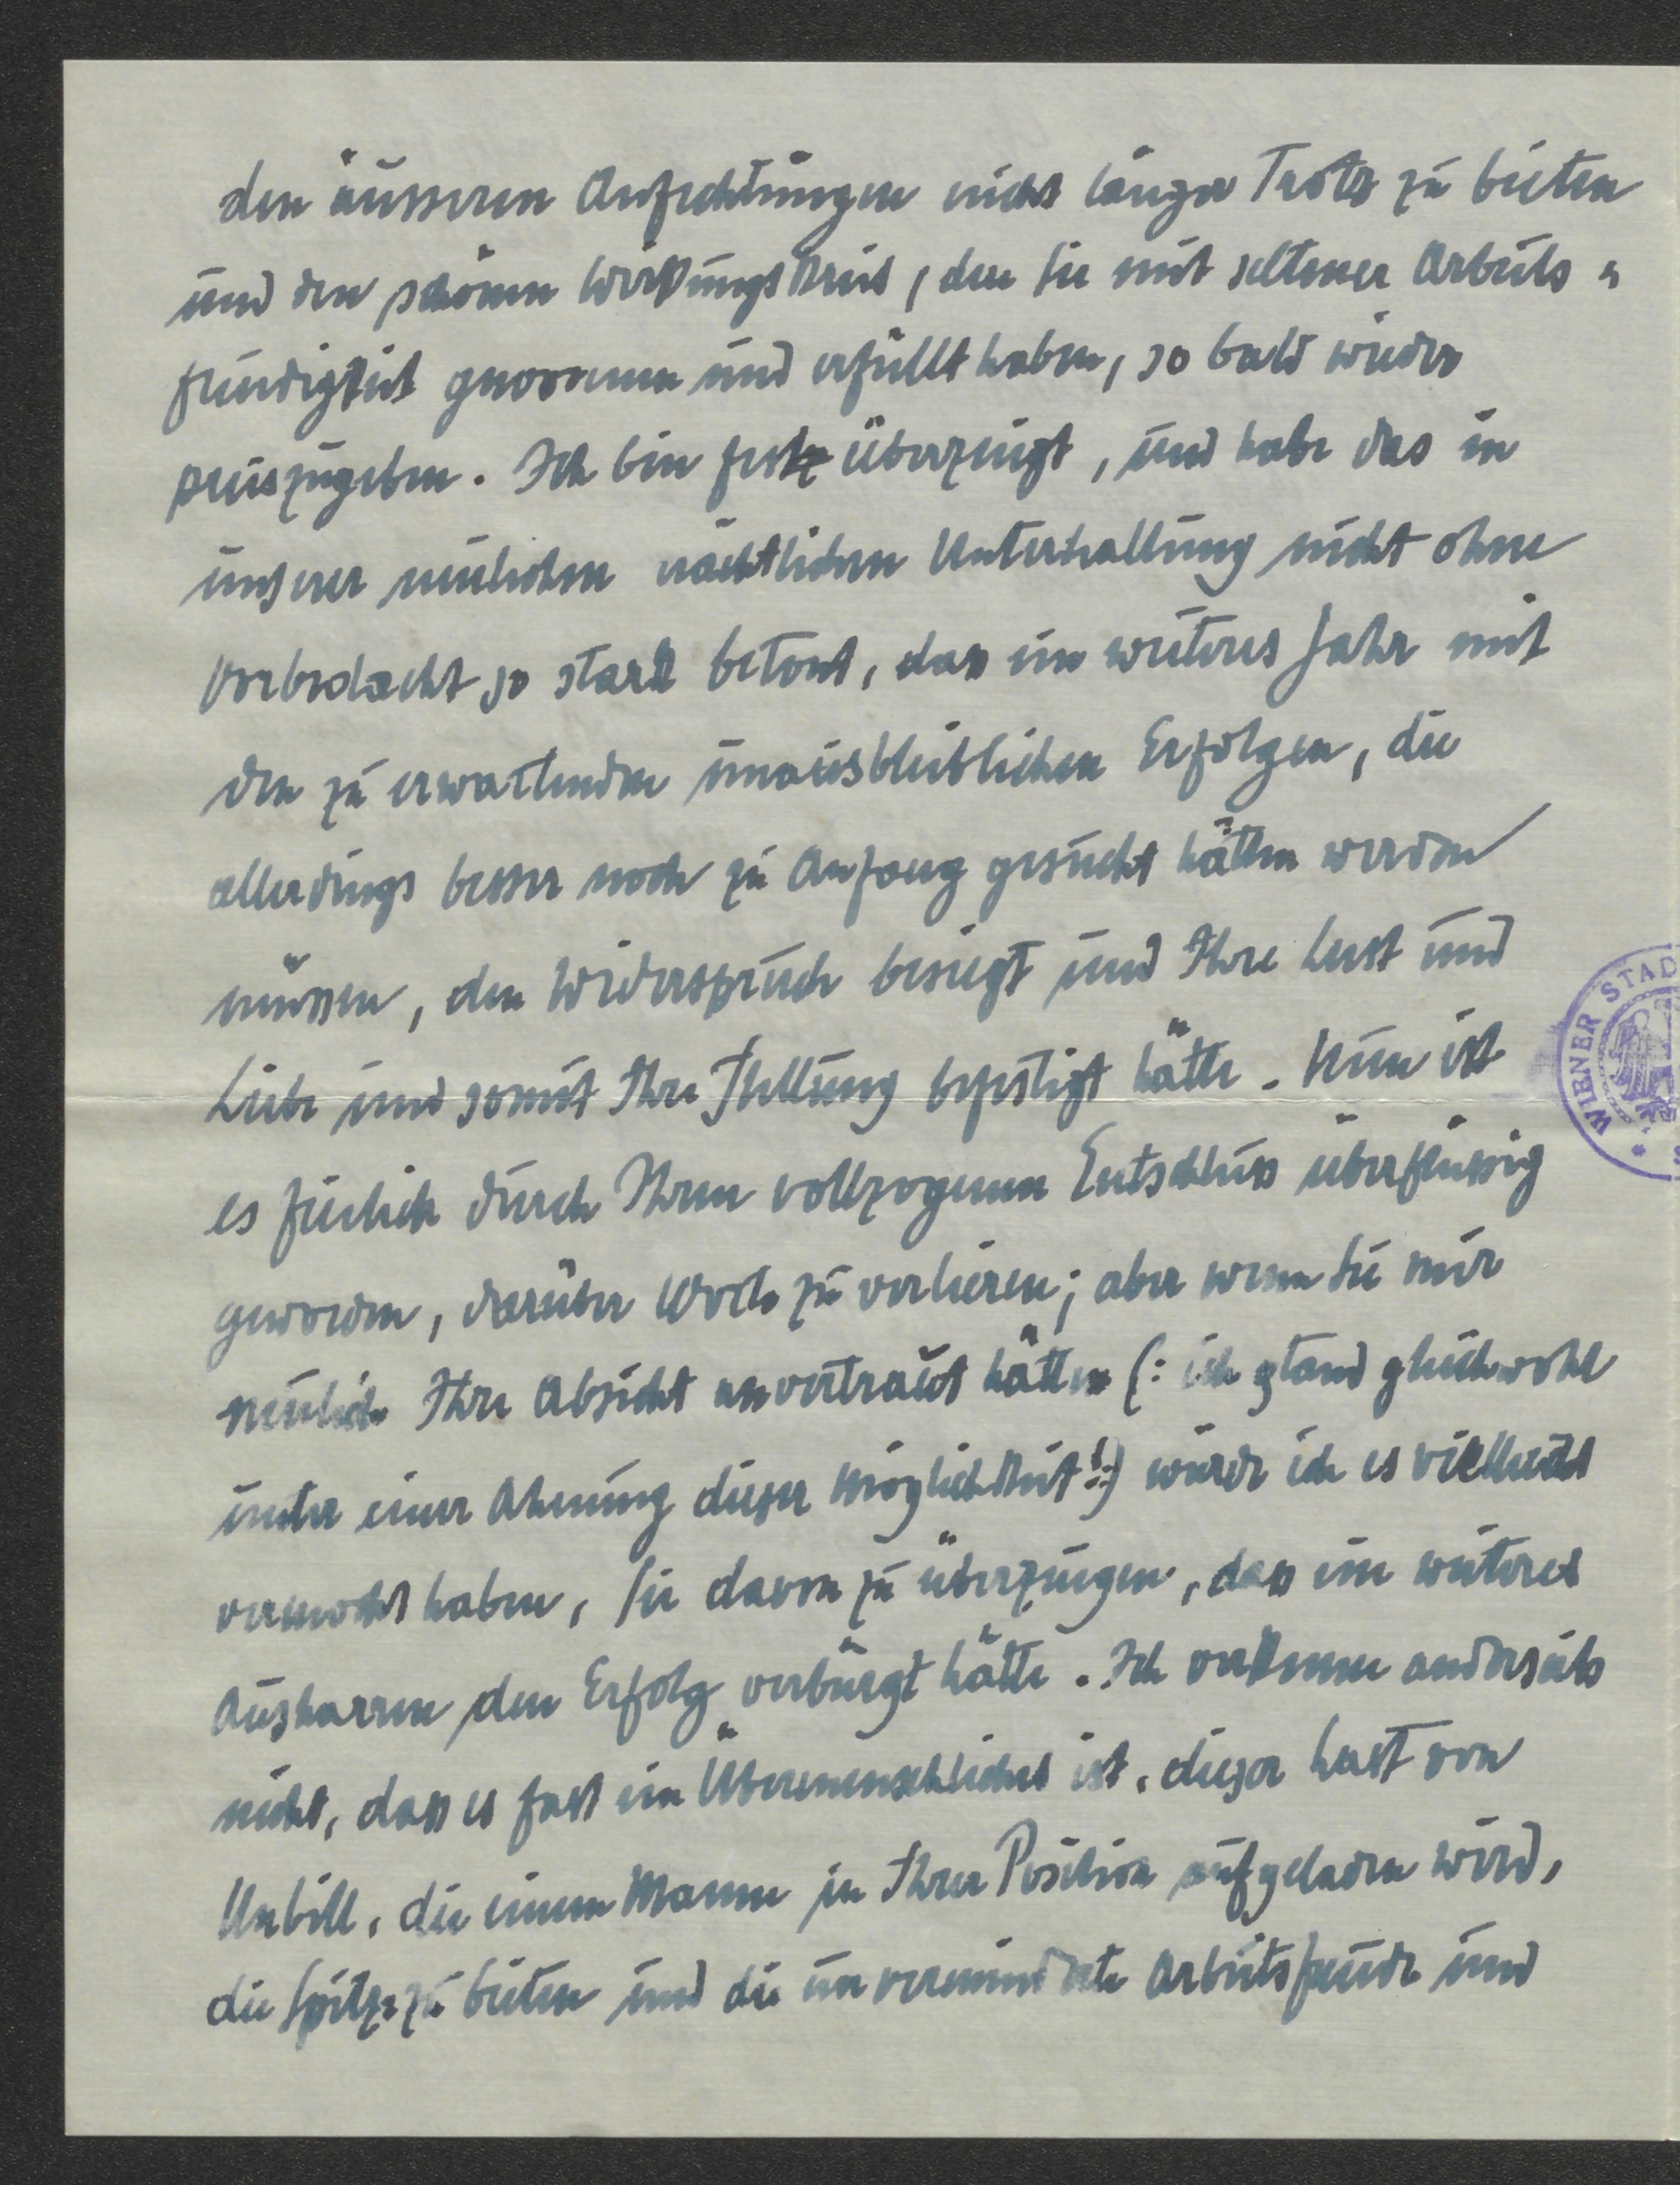 den äusseren Anfechtungen nicht länger Trotz zu bieten
und den schönen Wirkungskreis, den Sie mit seltener Arbeits=
freudigkeit genommen und erfüllt haben, so bald wieder
preiszugeben. Ich bin fest überzeugt, und habe das in
unserer neulichen nächtlichen Unterhaltung nicht ohne
Vorbedacht so stark betont, dass ein weiteres Jahr mit
den zu erwartenden unausbleiblichen Erfolgen, die
allerdings besser noch zu Anfang gesucht hätten werden
müssen, den Widerspruch besiegt und Ihre Lust und
Liebe und somit Ihre Stellung befestigt hätte. Nun ist
es freilich durch Ihren vollzogenen Entschluss überflüssig
geworden, darüber Worte zu verlieren; aber wenn Sie mir
neulich Ihre Absicht anvertraut hätten (: ich stand gleichwohl
unter einer Ahnung dieser Möglichkeit!:) würde ich es vielleicht
vermocht haben, Sie davon zu überzeugen, dass ein weiteres
Ausharren den Erfolg verbürgt hätte. Ich verkenne anderseits
nicht, dass es fast ein Übermenschliches ist, dieser Last von
Unbill, die einem Manne in Ihrer Position aufgeladen wird,
die Spitze zu bieten und die unverminderte Arbeitsfreude und
WIENER STAD